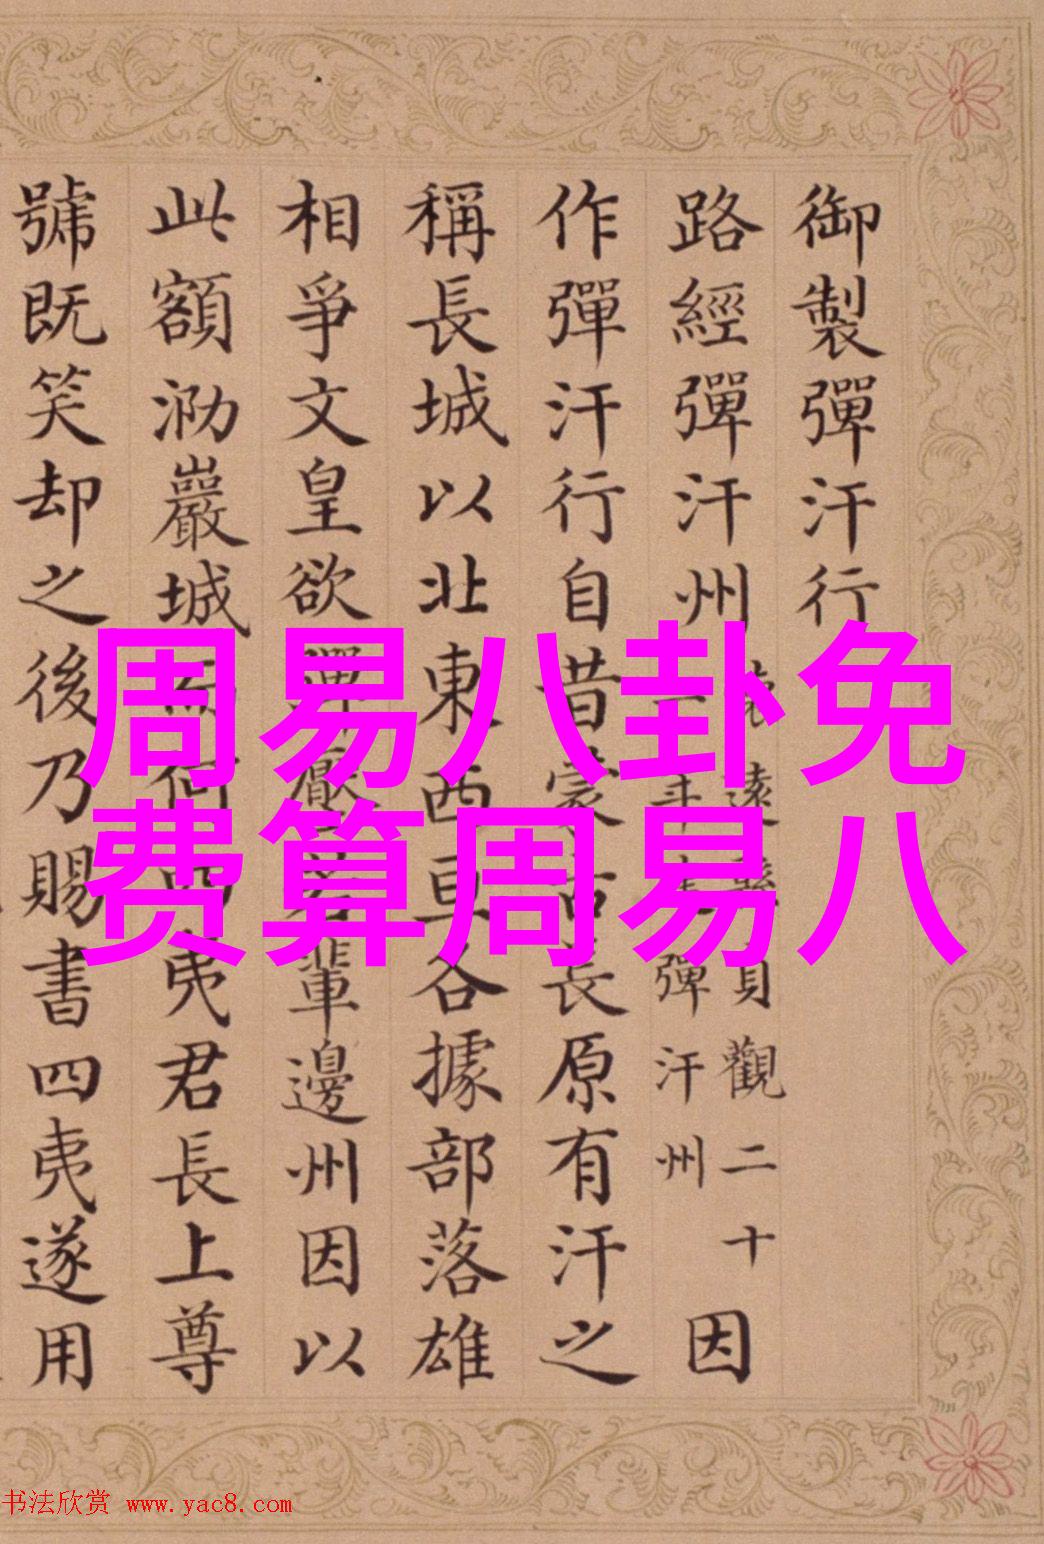 御製彈汗行
路經彈汗州
遠貞觀二十
年彈汗州
因
作彈汗行自昔蒙古長原有汗之
稱長城以北東西亘各據部落雄
相爭文皇欲彈壓若輩邊州因以
此額泐巖城何夷君長上尊
號既笑却之後乃賜書四夷遂用
周易八卦免
费算周易八
书法欣赏 www.yac8.com